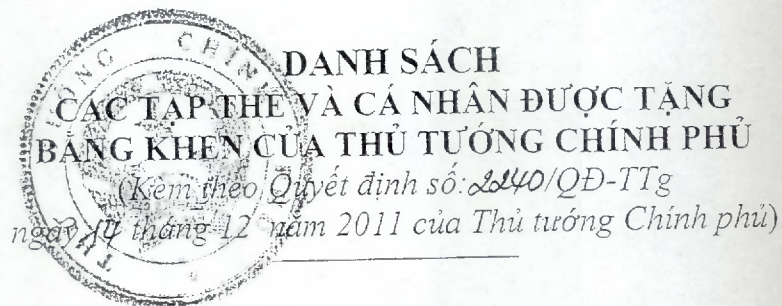 DANH SÁCH
CÁC TẬP THỂ VÀ CÁ NHÂN ĐƯỢC TẶNG
BẰNG KHEN CỦA THỦ TƯỚNG CHÍNH PHỦ
(Kèm theo Quyết định số: 2240/QĐ-TTg
ngày tháng 12 năm 2011 của Thủ tướng Chính phủ)